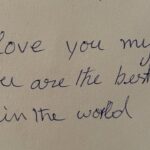 love you my
are the best
in the world